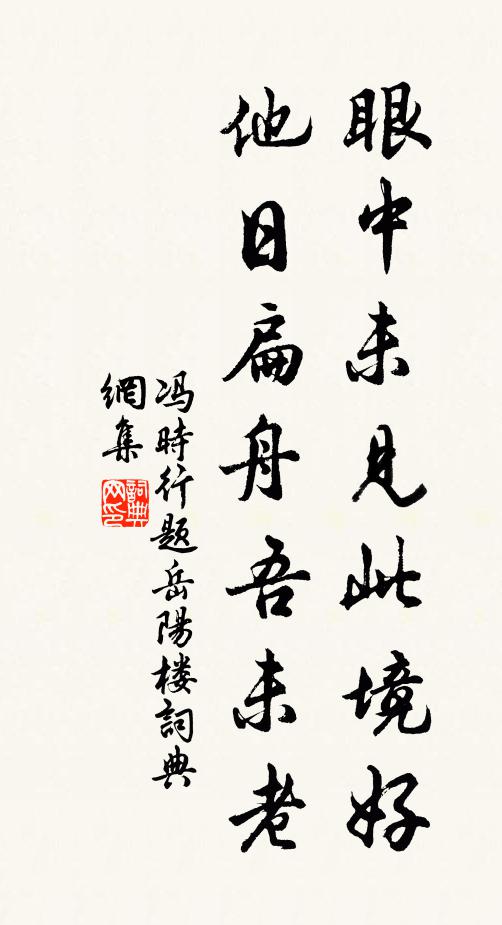 眼中未見此境好
他日扁舟吾未老
冯時行题岳陽楼詞典
網集
詞典
网印